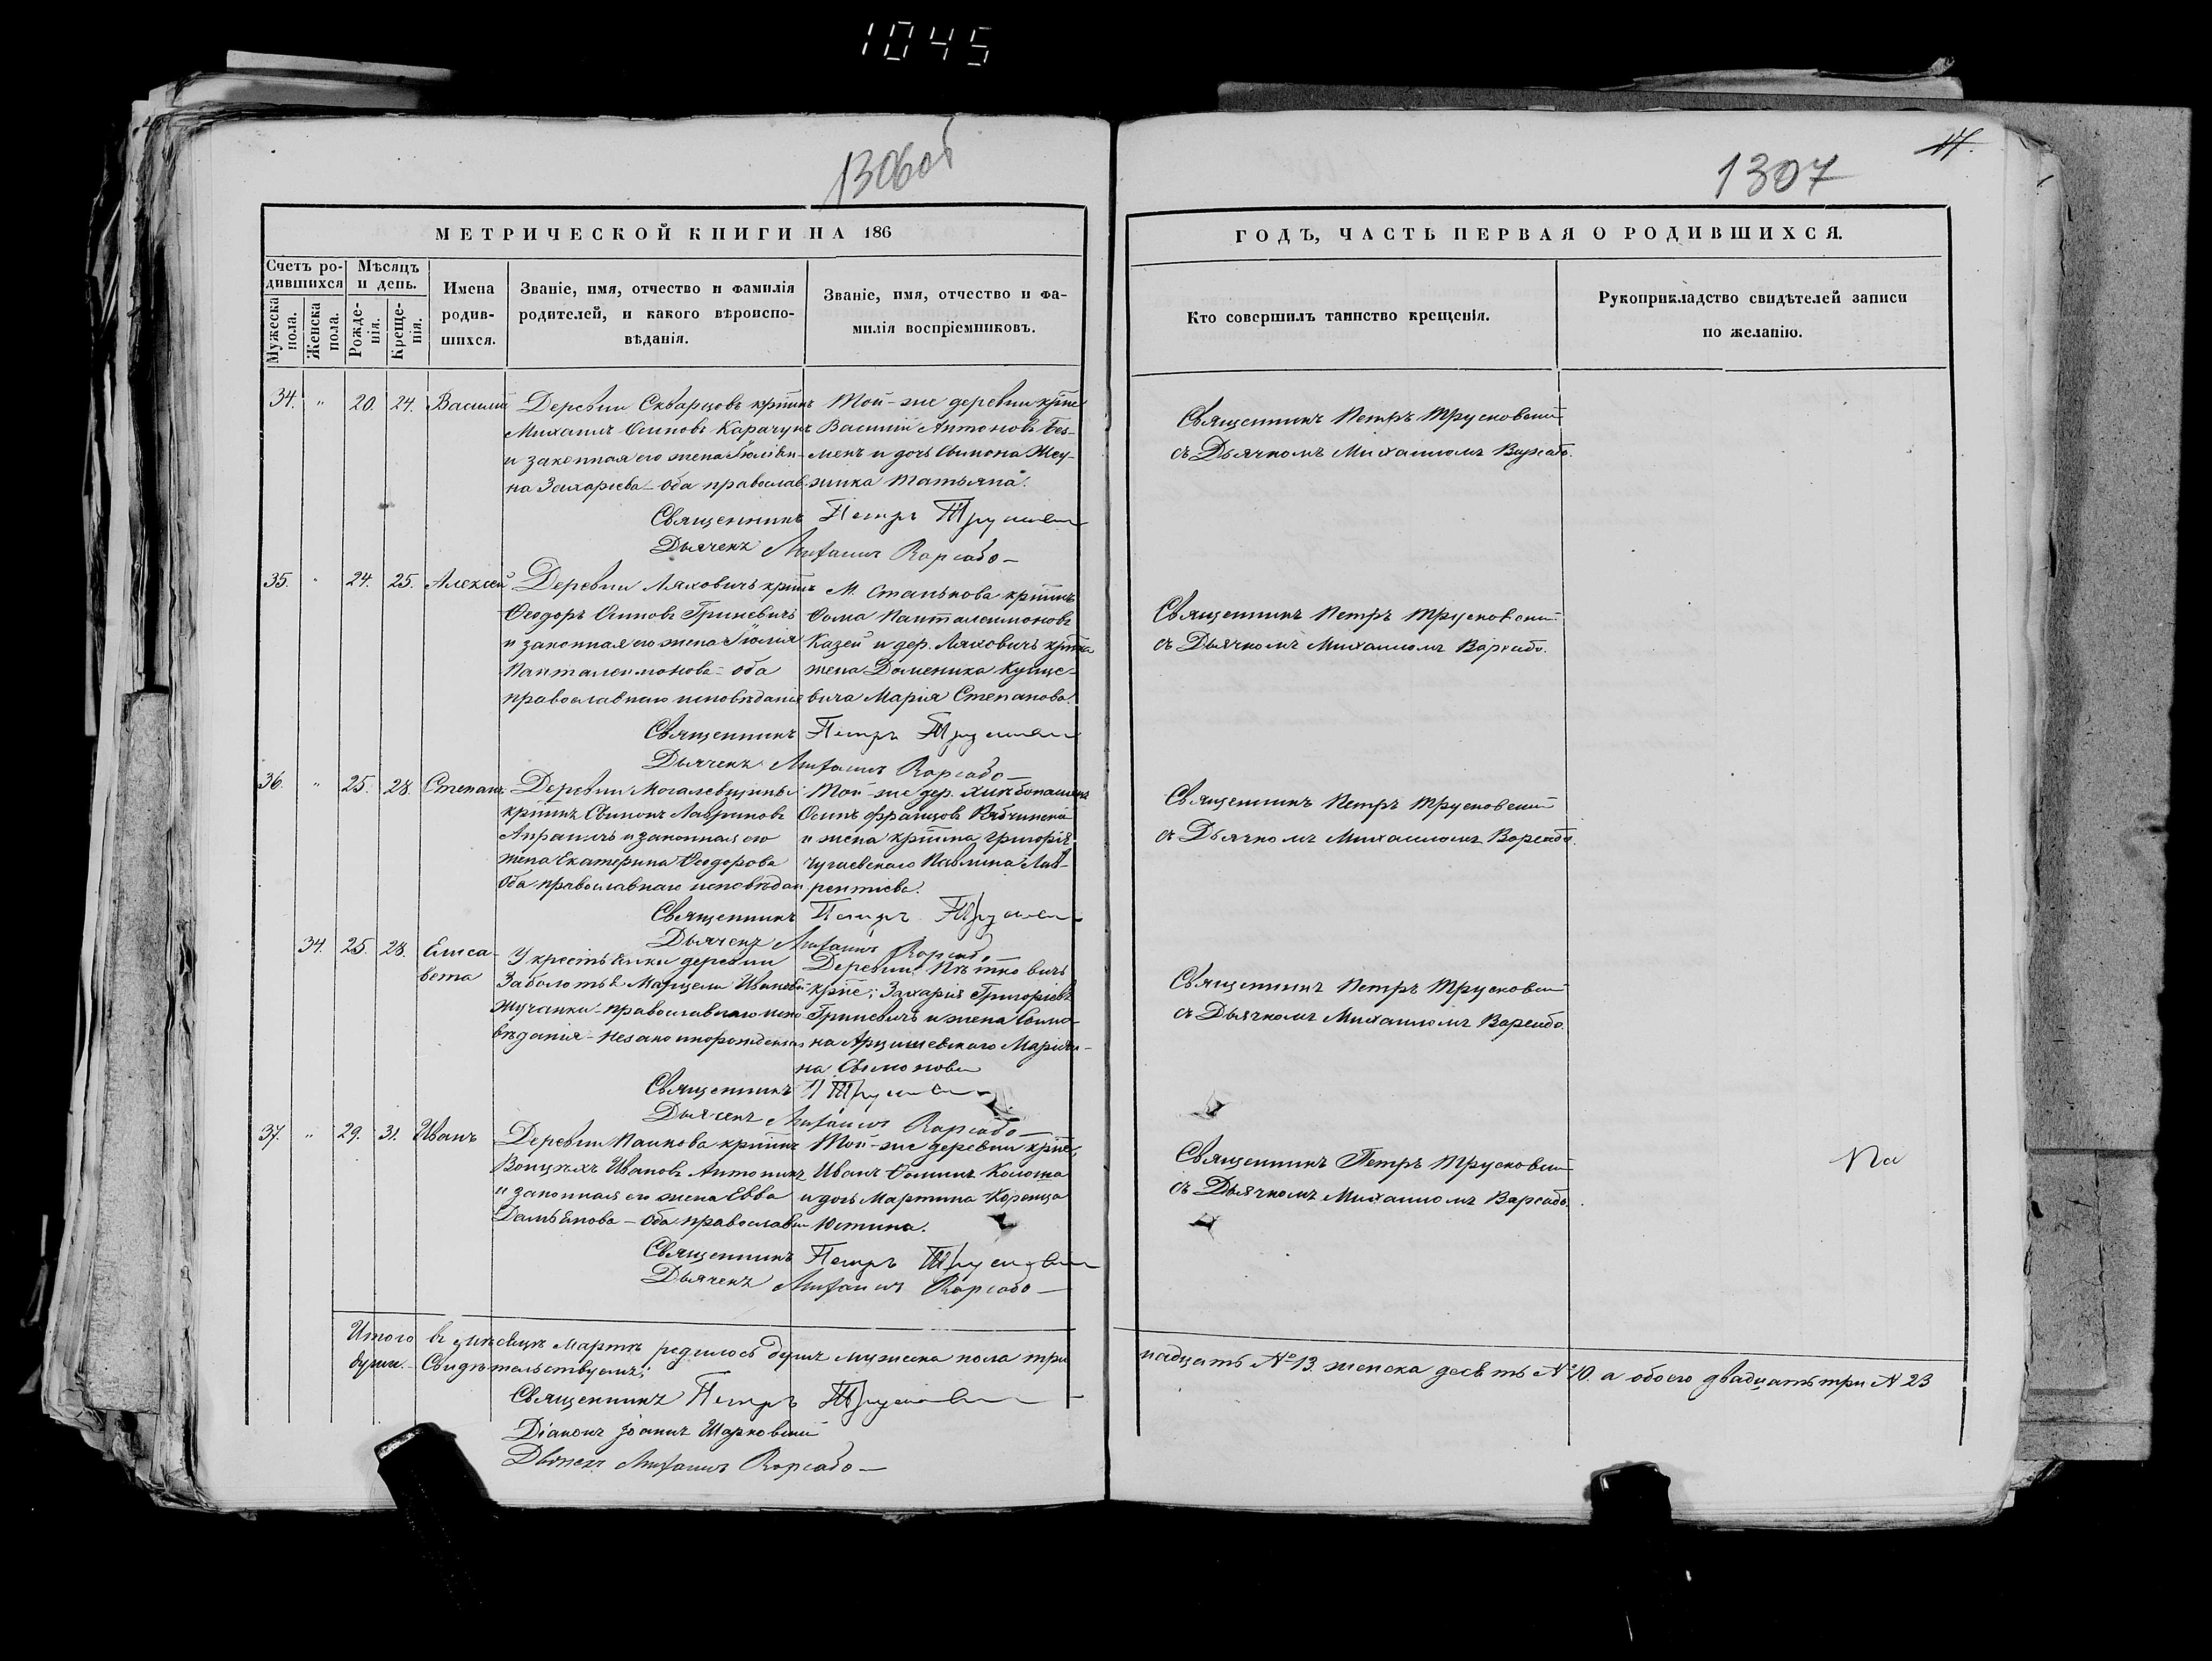 1045
1306об
1307
14.
МЕТРИЧЕСКОЙ КНИГИ НА 186
ГОДЪ, ЧАСТЬ ПЕРВАЯ О РОДИВШИХСЯ.
Счетъ ро-
дившихся
Мужеска
пола.
Женска
пола.
Мѣсяцъ
и день.
Рожде-
нія.
Креще-
нія.
Имена
родив-
шихся.
Званіе, имя, отчество и фамилія
родителей, и какого вѣроиспо-
вѣданія.
Званіе, имя, отчество и фа-
милія воспріемниковъ.
Кто совершилъ таинство крещенія.
Рукоприкладство свидѣтелей записи
по желанію.
34. " 20. 24. Василій
Деревни Скварцовъ крт̃нинъ
Михаилъ Осиповъ Карачунъ
и законная его жена Іюліан-
на Захарьева - оба православ.
Той-же деревни крт̃не
Василій Антоновъ Без-
менъ и дочь Симона Жеу-
жика Татьяна.
Священникъ Петръ Трусковскій
Дьячекъ Михаилъ Варсабо
Священникъ Петръ Трусковскій
съ Дьячкомъ Михаиломъ Варсабо.
35. " 24. 25. Алексѣй
Деревни Ляховичъ крт̃нинъ
Ѳеодоръ Осиповъ Гриневичъ
и законная его жена Іюлія
Панталеимонова - оба
православнаго исповѣданія
М. Станькова крт̃нинъ
Ѳома Панталеимоновъ
Казей и дер. Ляховичъ крт̃нка
жена Доменика Куцце-
вича Марія Степанова.
Священникъ Петръ Трусковскій
Дьячекъ Михаилъ Варсабо
Священникъ Петръ Трусковскій
съ Дьячкомъ Михаиломъ Варсабо.
36. " 25. 28. Степанъ
Деревни Могалевщины
крт̃нинъ Симонъ Лавриновъ
и законная его
жена Екатерина Ѳеодорова
Оба православнаго исповѣдан
Той-же дер. хлѣбопашецъ
Осипъ Францовъ
и жена крт̃нина Григорія
Чугаевскаго Павлина Лав-
рентіева.
Священникъ Петръ Трусковскій
Дьячекъ Михаилъ Варсабо
Священникъ Петръ Трусковскій
съ Дьячкомъ Михаиломъ Варсабо.
34. 25. 28. Елиса-
вета
У крестьянки деревни
Заболотья Марцели Ивановой
Жучанки - православнаго испо-
вѣданія - незаконнорожденная
Деревни Пѣтковичъ
крт̃не; Захарія Григорьевъ
Гриневичъ и жена Симо-
на Арцишевскаго Маріан-
на Симонова
Священникъ П Трусковскій
Дьячекъ Михаилъ Варсабо
Священникъ Петръ Трусковскій
съ Дьячкомъ Михаиломъ Варсабо.
37. " 29. 31. Иванъ
Деревни Папкова крт̃нинъ
Войцѣхъ Ивановъ Антоникъ
и законная его жена Евва
Демьянова - Оба православн
Той-же деревни крт̃не,
Иванъ Ѳоминъ Колотка
и дочь Мартина Коренца
Юстина.
Священникъ Петръ Трусковскій
Дьячекъ Михаилъ Варсабо
Священникъ Петръ Трусковскій
съ Дьячкомъ Михаиломъ Варсабо.
Итого въ мѣсяцѣ Мартѣ родилось душъ мужеска пола три
надцать № 13. женска десять № 10. а обоего двадцать три № 23
души. - Свидѣтельствуемъ;
Священникъ Петръ Трусковскій
Діаконъ Іоаннъ Шарковскій
Дьячекъ Михаилъ Варсабо